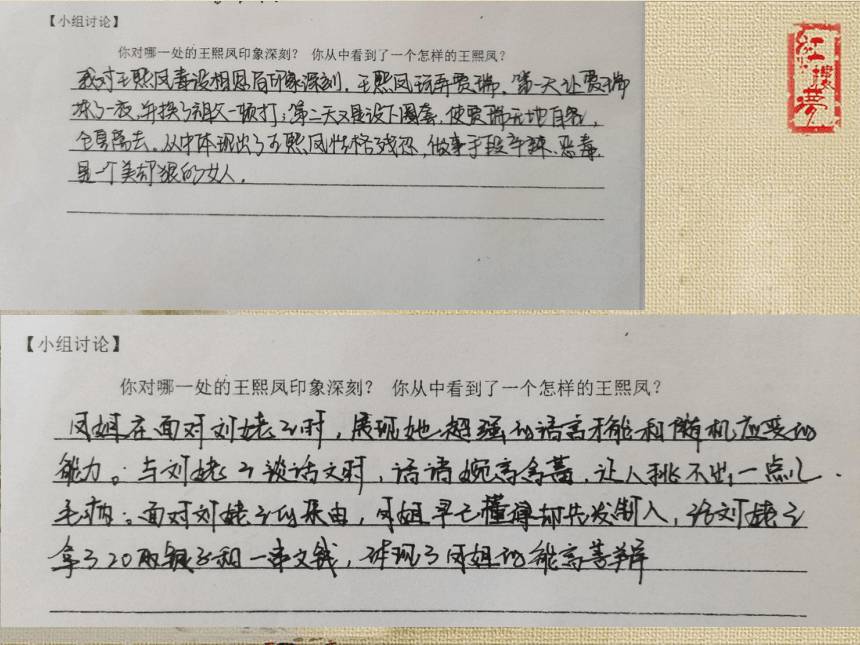 【小组讨论】
你对哪一处的王熙凤印象深刻？ 你从中看到了一个怎样的王熙凤？
我对王熙凤毒设相思局印象深刻，王熙凤玩弄贾瑞，第一天让贾瑞
冻了一夜，并换了祖父一顿打；第二天又是设下圈套，使贾瑞无地自容，
仓离去。从中体现出了王熙凤性格残忍，做事手段辛辣、恶毒，
是一个美却狠的女人。
红楼梦
【小组讨论】
你对哪一处的王熙凤印象深刻？ 你从中看到了一个怎样的王熙凤？
凤姐在面对刘姥姥时，展现她超强的语言才能和随机应变的
能力。与刘姥姥谈话文时，话语婉言含蓄，让人挑不出一点儿
毛病；面对刘姥姥的来由，凤姐早已懂得却先发制人，给刘姥姥
拿了20两银子和一串文钱，体现了凤姐的能言善辩